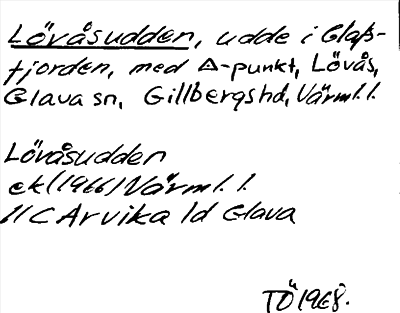 Lövåsudden, udde i Glaf-
fjorden, med △-punkt, Lövås,
Glava sn, Gillbergs hd, Värml. l.
Lövåsudden
ek (1966) Värml. l.
11C Arvika 1d Glava
TÖ 1968.